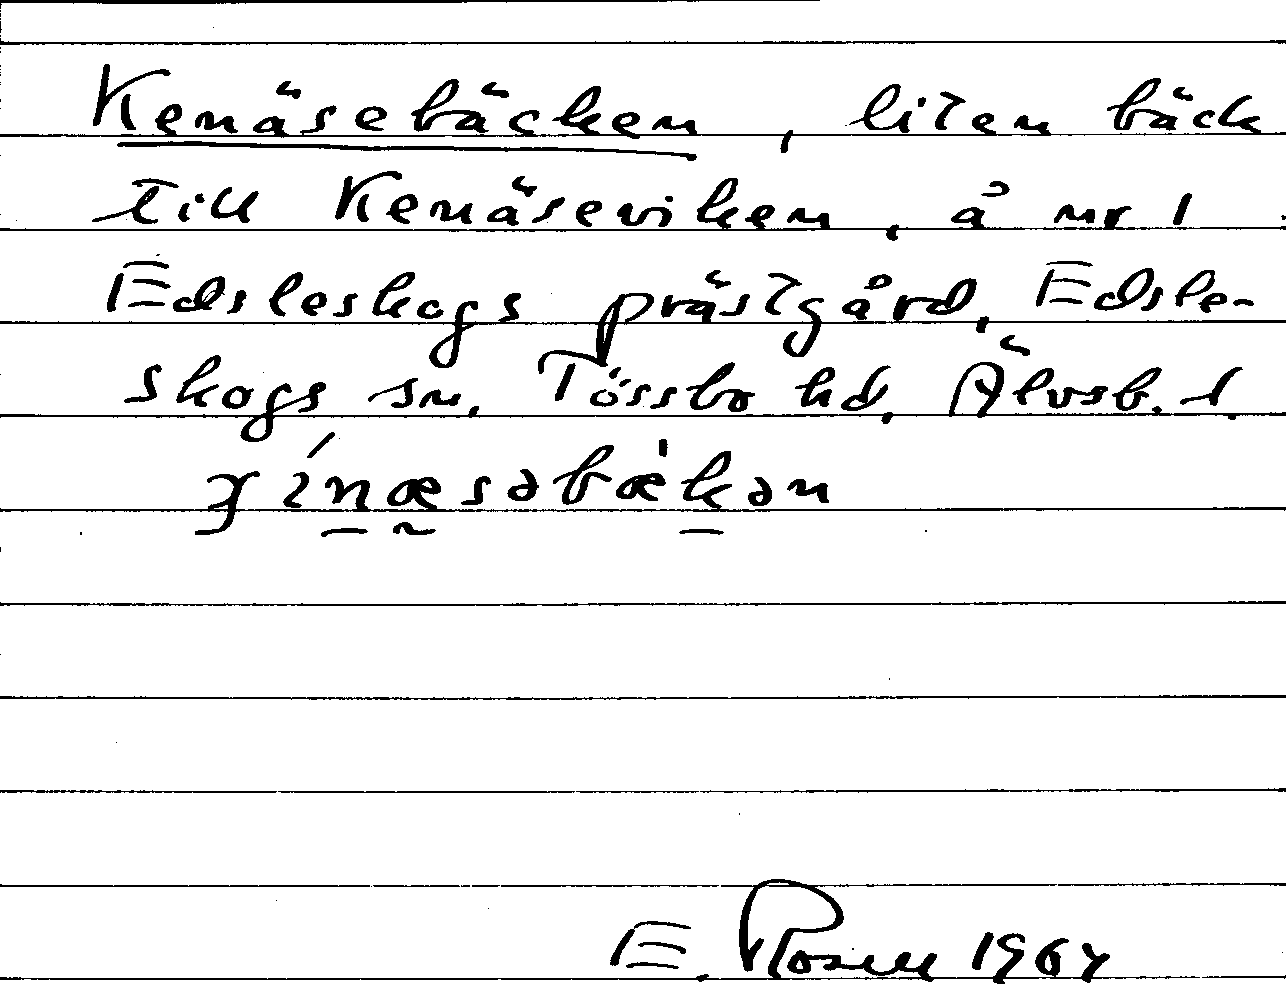 Kenäsebäcken, liten bäck
till Kenäseviken, å nr 1
Edsleskogs prästgård, Edsle-
skogs sn, Tössbo hd, Älvsb. l.
E. Rosell 1964